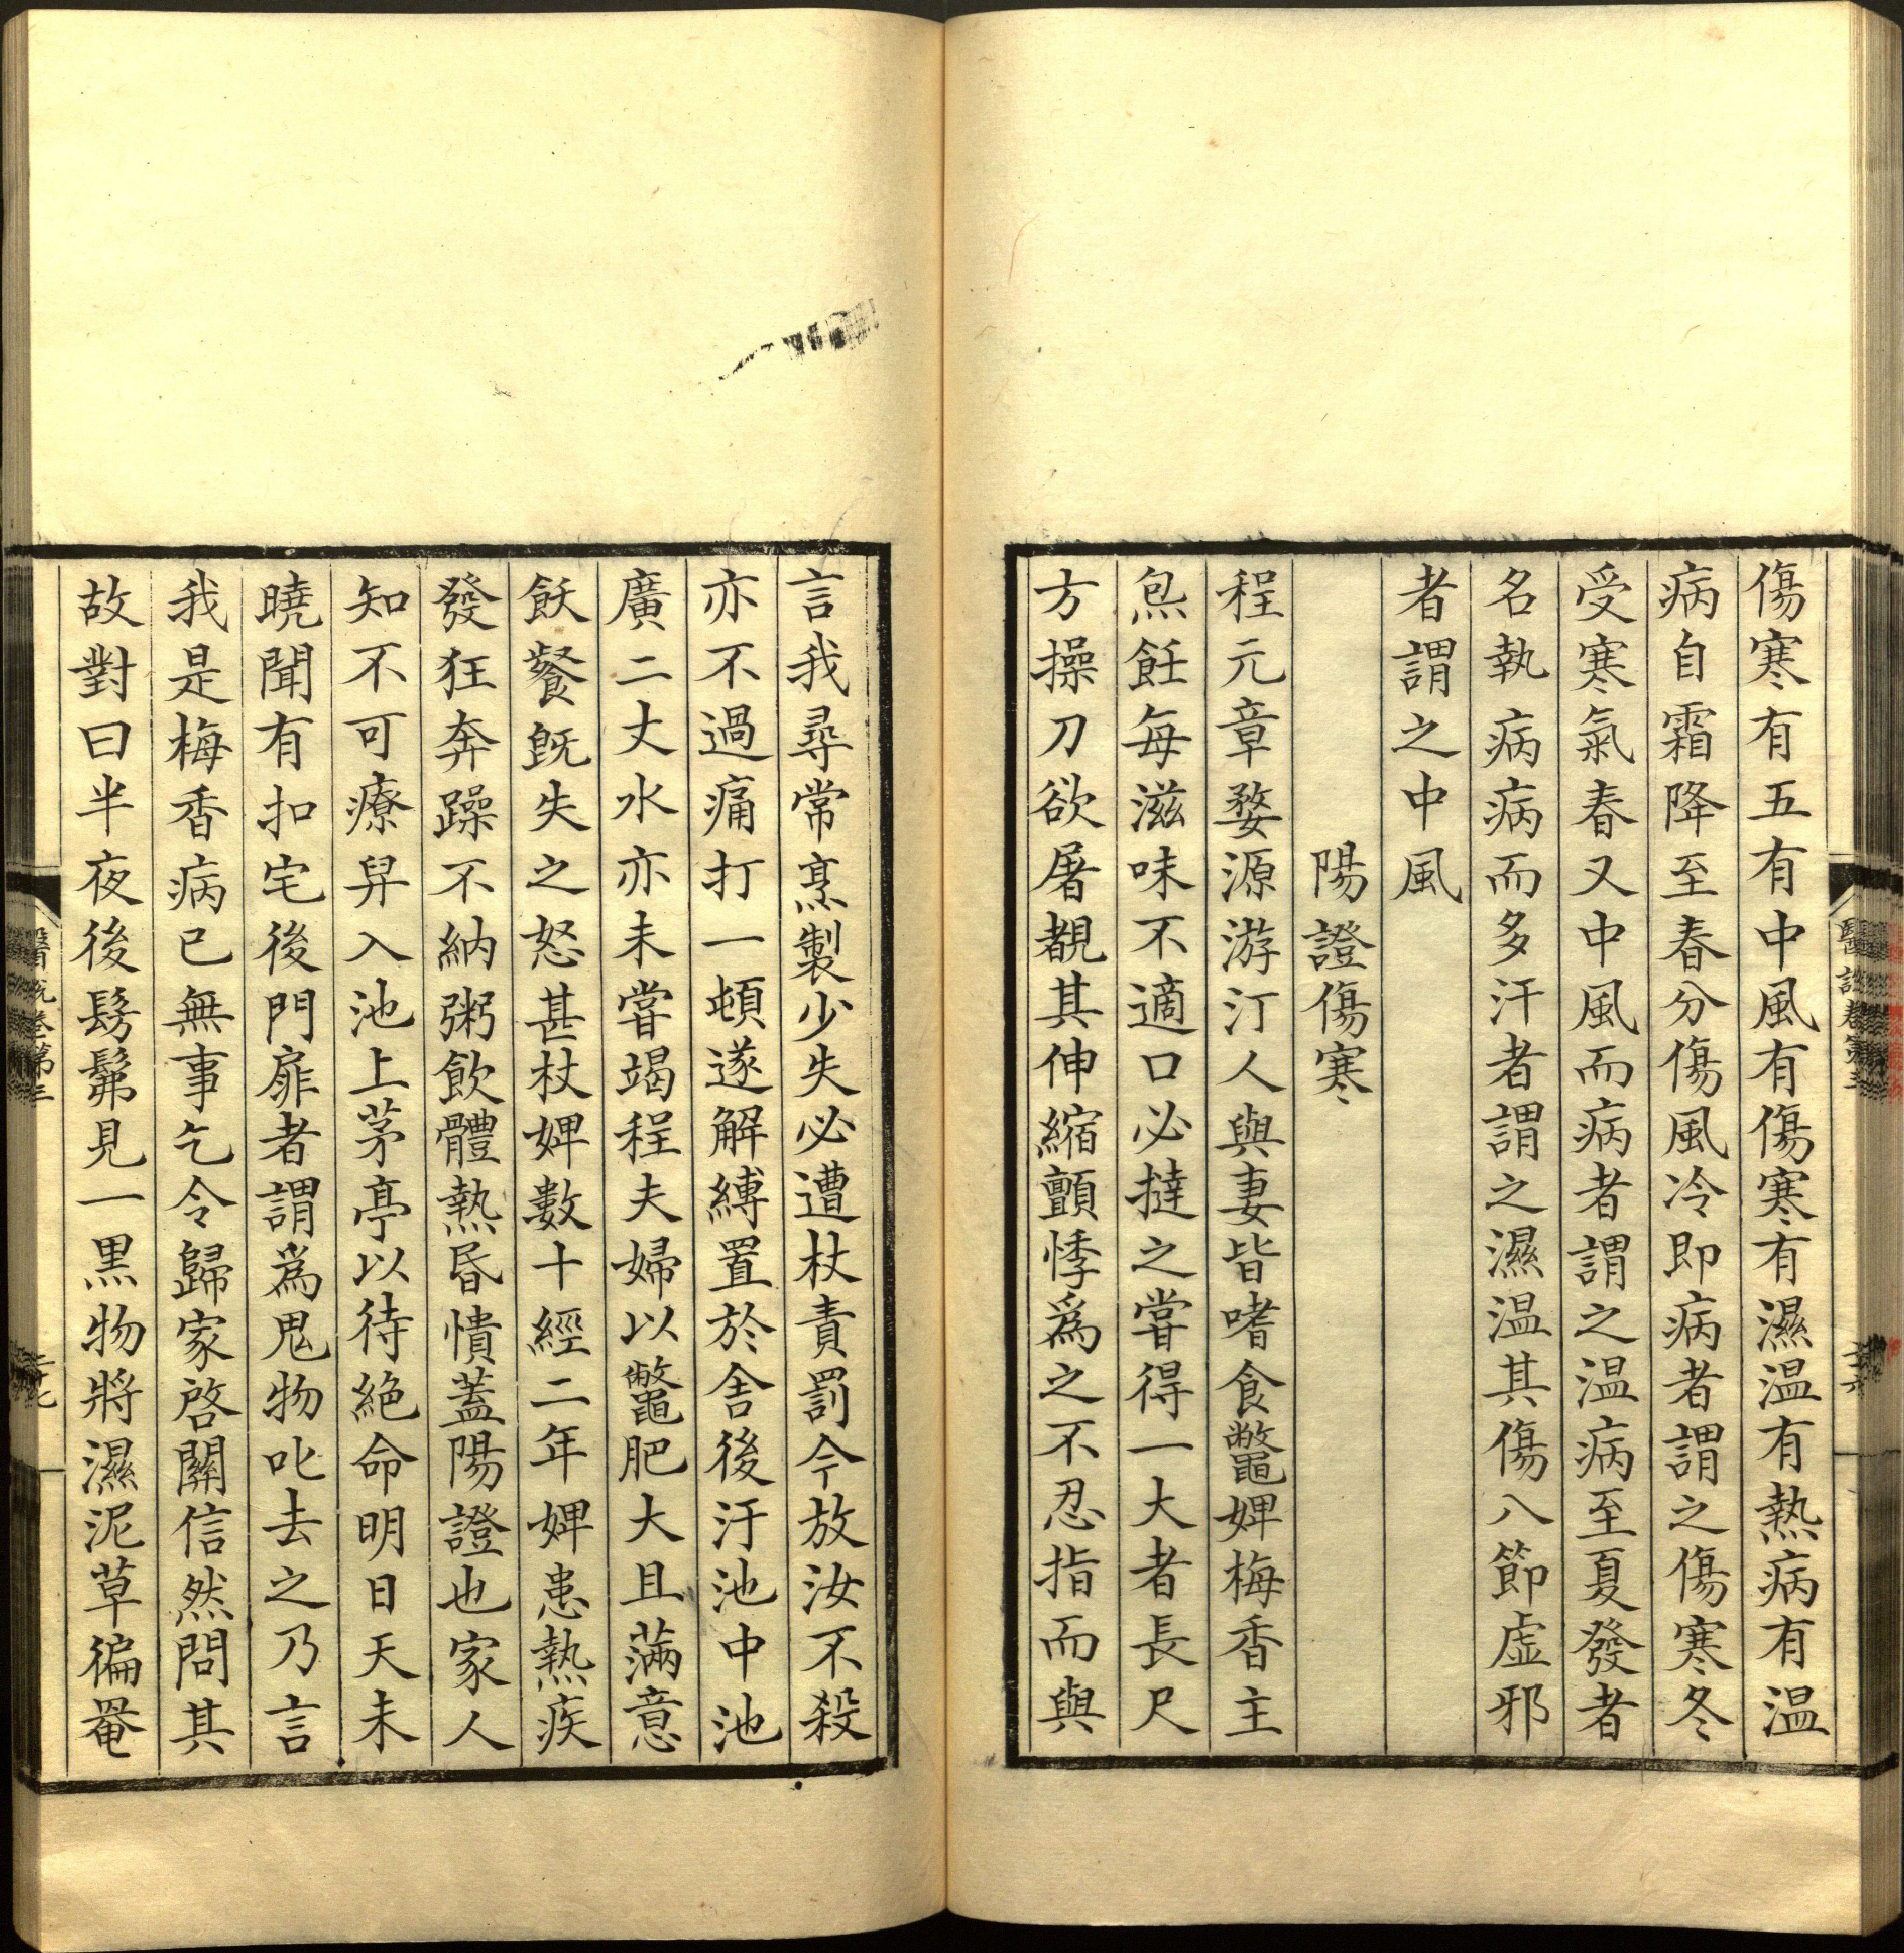 傷寒有五有中風有傷寒有濕温有熱病有温
病自霜降至春分傷風冷即病者謂之傷寒冬
受寒氣春又中風而病者謂之温病至夏發者
名執病病而多汗者謂之濕温其傷八節虚邪
者謂之中風
陽證傷寒
程元章婺源游汀人與妻皆嗜食鼈婢梅香主
炰飪每滋味不適口必撻之甞得一大者長尺
方操刀欲屠覩其伸縮顫悸爲之不忍指而與
言我尋常烹製少失必遭杖責罰今放汝不殺
亦不過痛打一頓遂解縛置於舍後汙池中池
廣二丈水亦未甞竭程夫婦以鼈肥大且滿意
飫餮旣失之怒甚杖婢數十經二年婢患熱疾
發狂奔躁不納粥飲體熱昏憒蓋陽證也家人
知不可療舁入池上茅亭以待絶命明日天未
曉聞有扣宅後門扉者謂爲鬼物叱去之乃言
我是梅香病已無事乞令歸家啓關信然問其
故對曰半夜後髣髴見一黒物將濕泥草徧罨
醫說卷第三
二十六
醫說卷第三
二十七